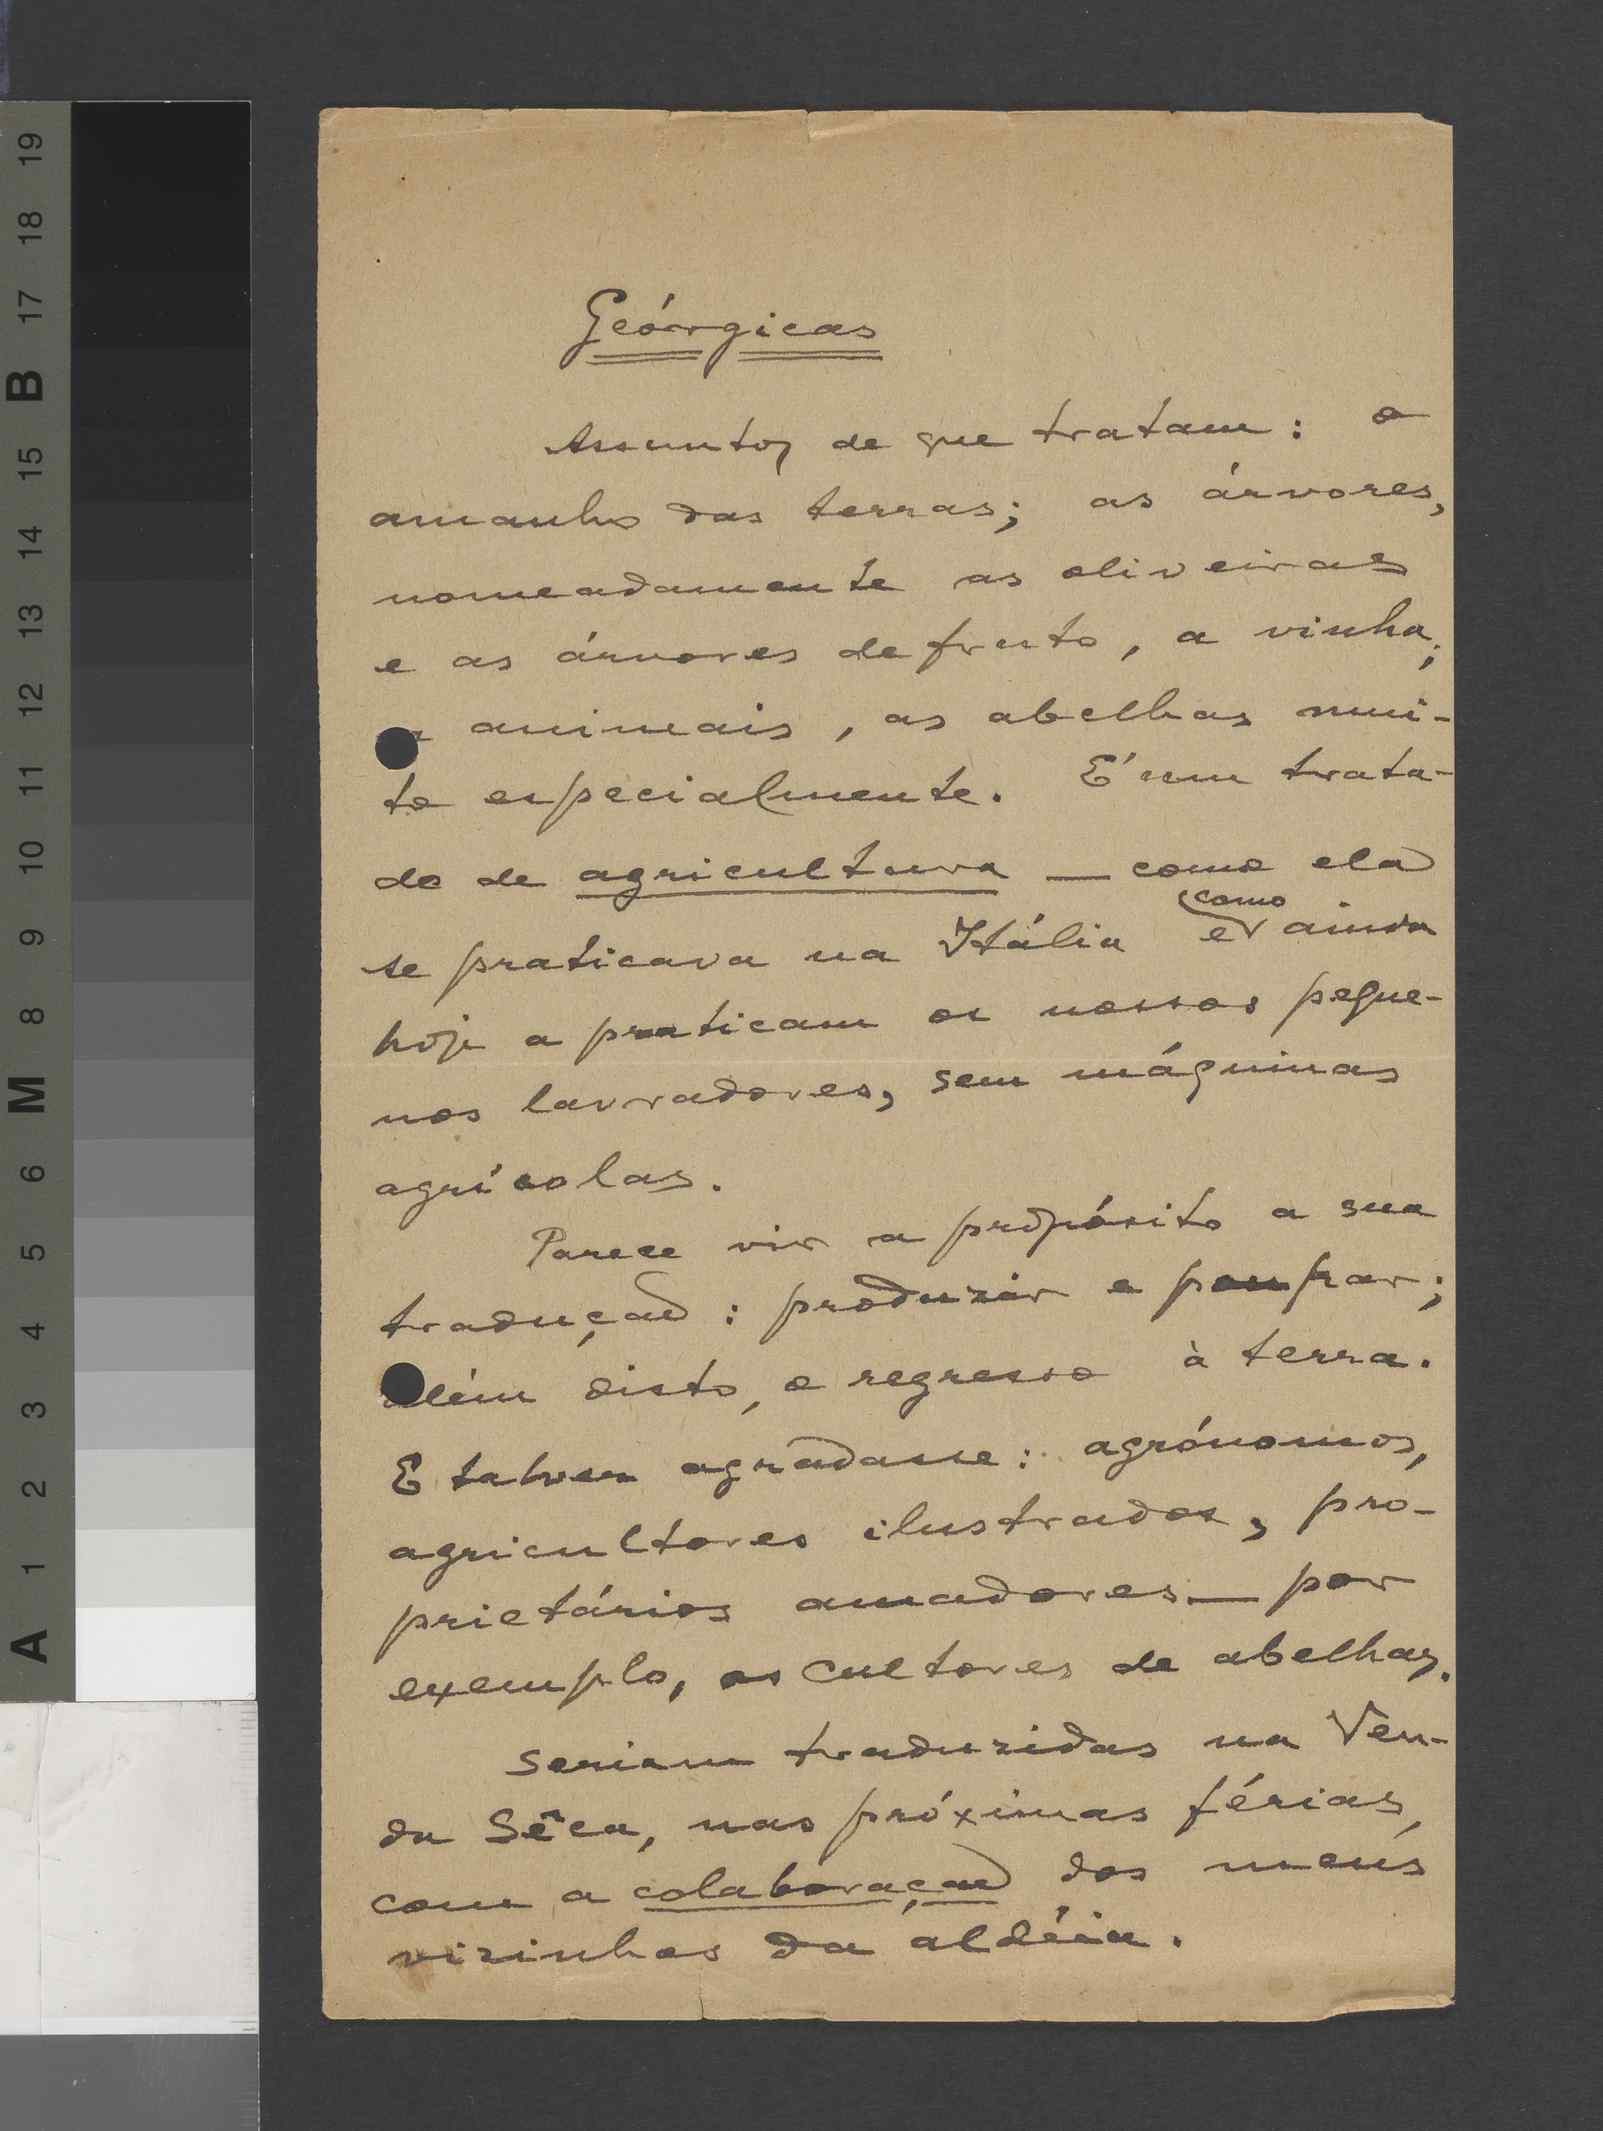 19
18
17
B
16
15
14
13
12
11
10
9
8
M
6
5
4
3
2
1
A
Geórgicas
Assuntos de que tratam: o
amanho das terras; as árvores,
nomeadamente as oliveiras
e as árvores de fruto, a vinha;
animais, as abelhas mui-
to especialmente. É um trata-
do de agricultura — como ela
se praticava na Itália e como ainda
hoje a praticam os nossos peque-
nos lavradores, sem máquinas
agrícolas.
Parece vir a propósito a sua
tradução: produzir e poupar;
além disto, o regresso à terra.
E talvez agradasse: agrónomos,
agricultores ilustrados, pro-
prietários amadores — por
exemplo, os cultores de abelhas.
Seriam traduzidas na Ven-
da Sêca, nas próximas férias,
com a colaboração dos meus
vizinhos da aldéia.